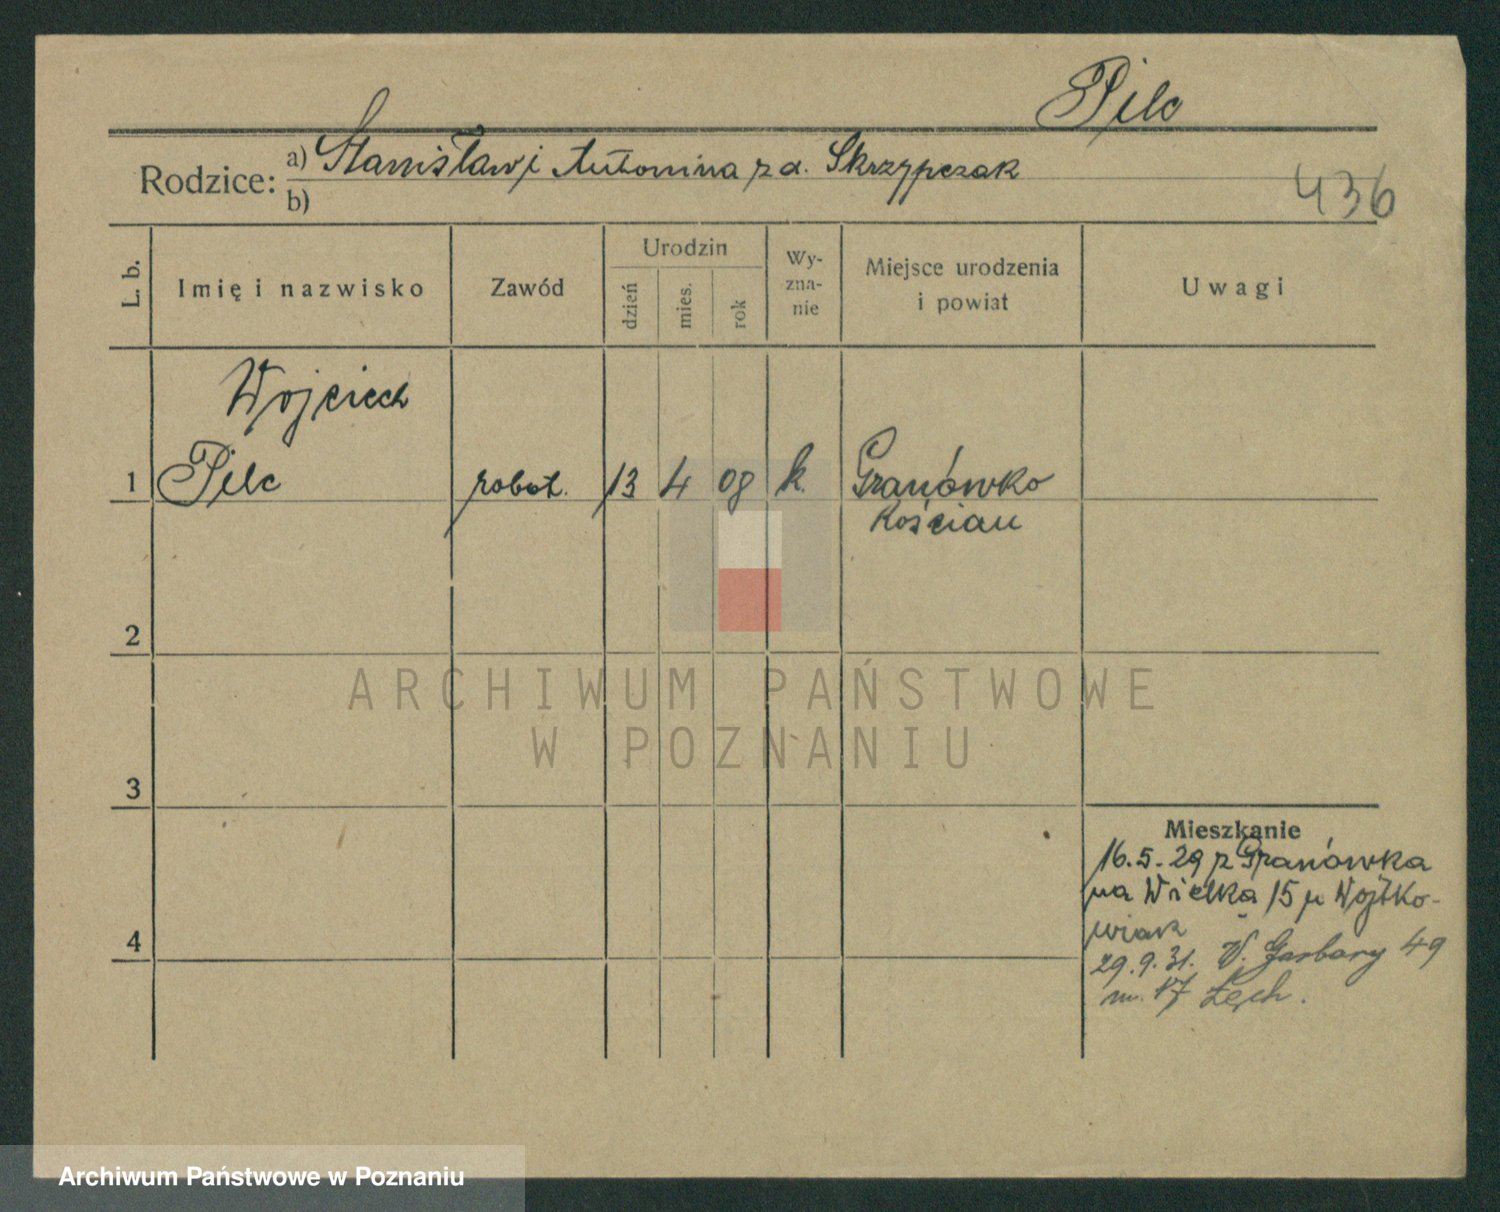 Pilc
Rodzice: a) Stanisław i Antonina z d. Skrzypczak
b)
436
L. b.
Imię i nazwisko
Zawód
Urodzin
dzień
mies.
rok
Wy-
zna-
nie
Miejsce urodzenia
i powiat
Uwagi
Wojciech
1 Pilc robot. 13 4 08 k. Granówko
Kościan
2
ARCHIWUM PAŃSTWOWE
W POZNANIU
3
Mieszkanie
16.5.29 z Granówka
na Wielka 15 u Wojtko-
wiak
4
29.9.31. W. Garbary 49
m. 17
Archiwum Państwowe w Poznaniu